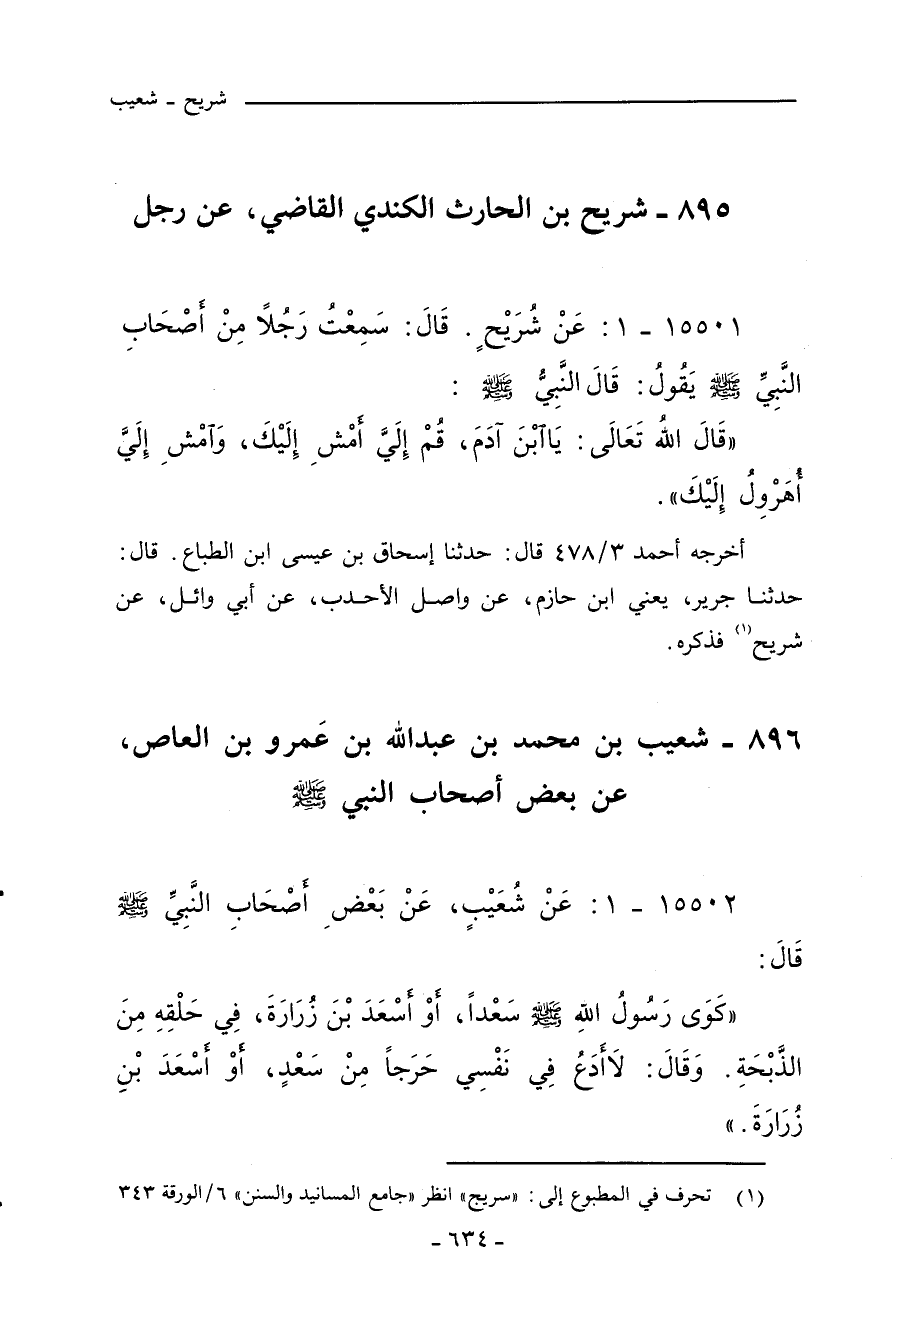 شريح ـ شعيب
٨٩٥ ـ شريح بن الحارث الكندي القاضي، عن رجل
١٥٥٠١ ـ ١: عَنْ شُرَيْحٍ. قَالَ: سَمِعْتُ رَجُلاً مِنْ أَصْحَابِ
النَّبِيِّ ﷺ يَقُولُ: قَالَ النَّبِيُّ ﷺ :
«قَالَ اللهُ تَعَالَى: يَاآبْنَ آدَمَ، قُمْ إِلَيَّ أَمْشِ إِلَيْكَ، وَآمْشِ إِلَيَّ
أُهَرْوِلُ إِلَيْكَ».
أخرجه أحمد ٤٧٨/٣ قال: حدثنا إسحاق بن عيسى ابن الطباع. قال:
حدثنا جرير، يعني ابن حازم، عن واصل الأحدب، عن أبي وائل، عن
شريح(١) فذكره.
٨٩٦ ـ شعيب بن محمد بن عبدالله بن عَمرو بن العاص،
عن بعض أصحاب النبي ﷺ
١٥٥٠٢ ـ ١: عَنْ شُعَيْبٍ، عَنْ بَعْضِ أَصْحَابِ النَّبِيِّ ﷺ
قَالَ:
«كَوَى رَسُولُ اللهِ ﷺ سَعْداً، أَوْ أَسْعَدَ بْنَ زُرَارَةَ، فِي حَلْقِهِ مِنَ
الذَّبْحَةِ. وَقَالَ: لَاأَدَعُ فِي نَفْسِي حَرَجاً مِنْ سَعْدٍ، أَوْ أَسْعَدَ بْنِ
زُرَارَةَ.»
(١) تحرف في المطبوع إلى: «سريج» انظر «جامع المسانيد والسنن» ٦/الورقة ٣٤٣
ـ ٦٣٤ ـ